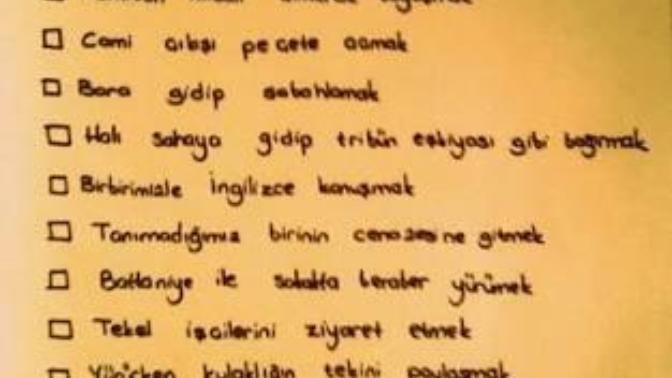 Cami çıkışı peçete açmak
Bara gidip sabahlamak
Halı sahaya gidip tribün eşkiyası gibi bağırmak
Birbirimizle ingilizce konuşmak
Tanımadığımız birinin cenazesine gitmek
Battaniye ile sokakta beraber yürümek
Tekel işçilerini ziyaret etmek
kulaklığın tekini paylaşmak